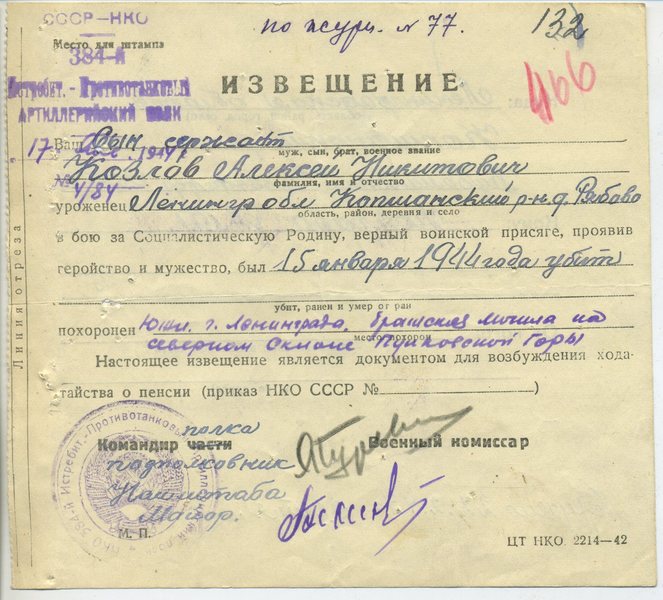 СССР-НКО
по журн. № 77.
132
Место для штампа
384-й
Истребит.-Противотанковый
Артиллерийский полк
466
ИЗВЕЩЕНИЕ
17 1944 г.
№ 4/84
Ваш Сын сержант
муж, сын, брат, военное звание
Козлов Алексей Никитович
фамилия, имя и отчество
уроженец Ленингр обл Капшанский р-н д. Рыбаво
область, район, деревня и село
в бою за Социалистическую Родину, верный воинской присяге, проявив
геройство и мужество, был 15 января 1944 года убит
убит, ранен и умер от ран
похоронен Южн. г. Ленинграда, братская могила на
северном Склоне Пулковской Горы
место похорон
Настоящее извещение является документом для возбуждения хода-
тайства о пенсии (приказ НКО СССР №)
полка
Командир части
Военный комиссар
подполковник
Нач штаба
Майор.
М. П.
ЦТ НКО 2214—42
Линия отреза